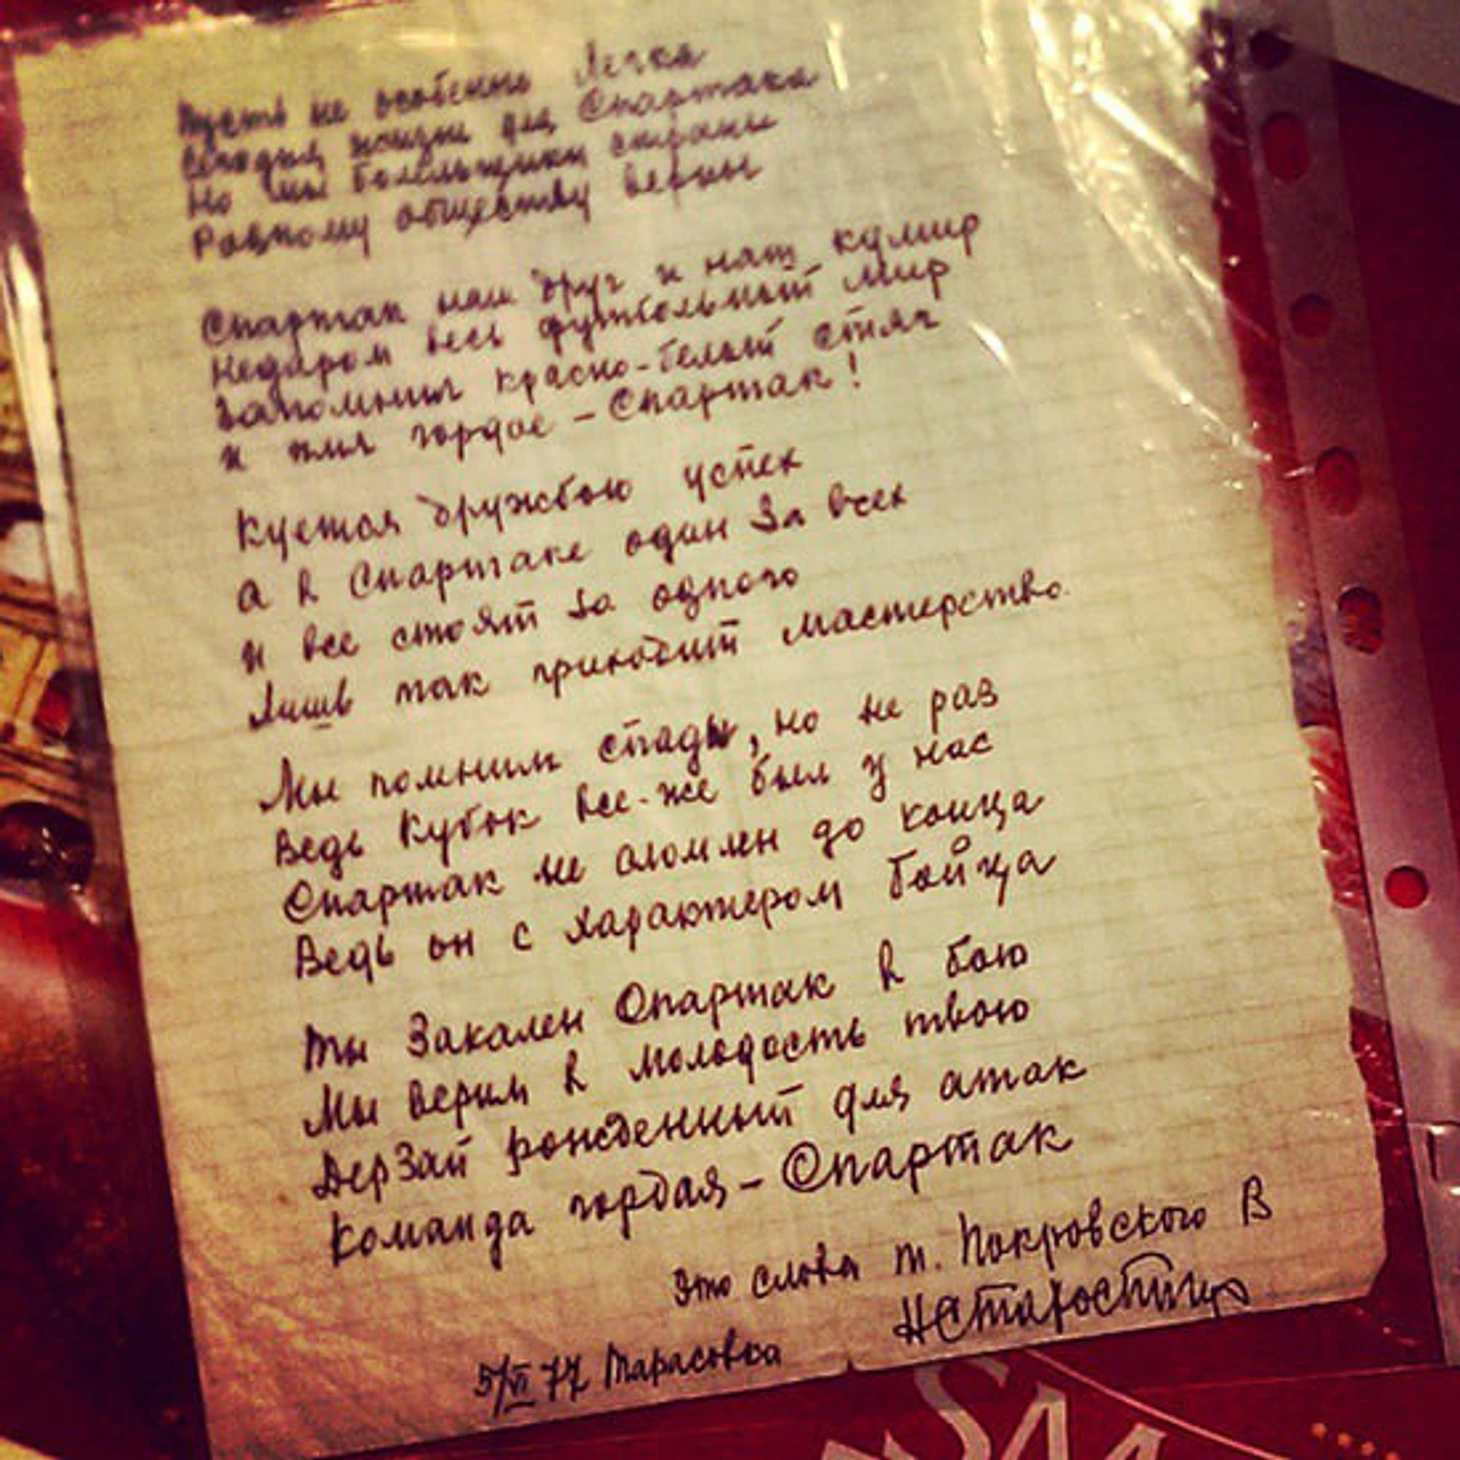 Пусть не особенно легка
Сегодня жизнь для Спартака
Но мы болельщики страны
Родному обществу верны
Спартак наш друг и наш кумир
Недаром весь футбольный мир
Запомнил красно-белый стяг
и имя гордое - Спартак!
Куется дружбою успех
а в Спартаке один за всех
и все стоят за одного
Лишь так приходит мастерство.
Мы помним спады, но не раз
Ведь Кубок все-же был у нас
Спартак не сломлен до конца
Ведь он с характером бойца
Ты Закален Спартак в бою
Мы верим в молодость твою
Дерзай рожденный для атак
Команда гордая - Спартак
Это слова т. Покровского В
НСтаростин
5/VI 77 Тарасовка